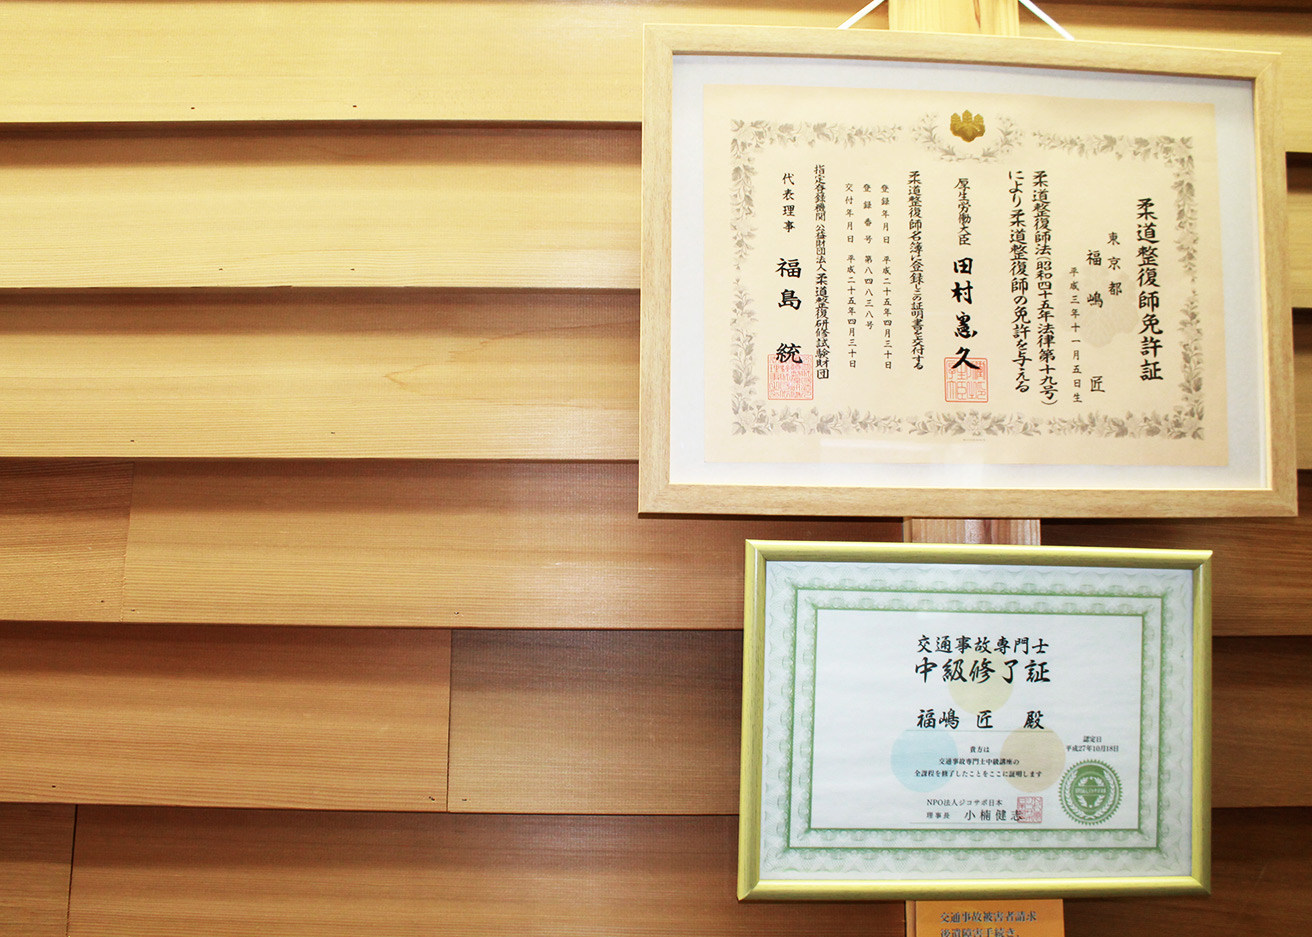 柔道整復師免許証
東京都
福嶋 匠
平成三年十一月五日生
柔道整復師法(昭和四十五年法律第十九号)
により柔道整復師の免許を与える
厚生労働大臣 田村憲久
柔道整復師名簿に登録しこの証明書を交付する
登録年月日 平成二十五年四月三十日
登録番号 第八四八三八号
交付年月日 平成二十五年四月三十日
指定登録機関 公益財団法人柔道整復研修試験財団
代表理事 福島 統
交通事故専門士
中級修了証
福嶋 匠 殿
認定日
平成27年10月18日
貴方は
交通事故専門士中級講座の
全課程を修了したことをここに証明します
NPO法人ジコサポ日本
理事長 小楠健志
交通事故被害者請求
後遺障害手続き、